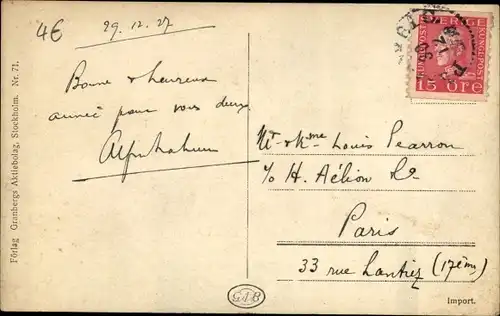 4€
29.12.27
Bonne & heureuse
année pour vous deux
SVERIGE
15 ÖRE
Mr & Mme Louis Pearron
c/o H. Aélion
Paris
33 rue Lantiez (17ème)
Förlag Granbergs Aktiebolag, Stockholm. Nr. 71.
GAB
Import.